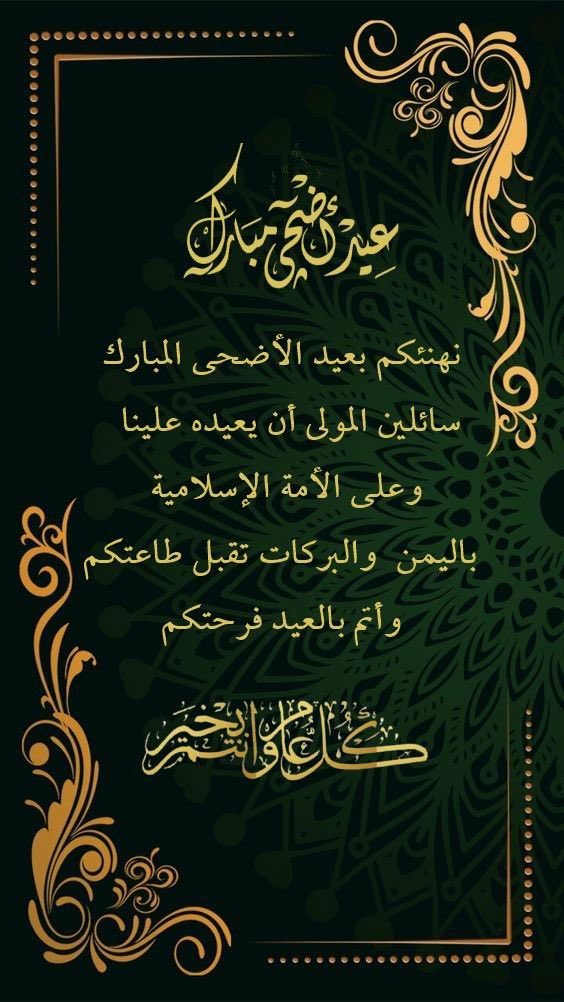 عيد أضحى مبارك
نهنئكم بعيد الأضحى المبارك
سائلين المولى أن يعيده علينا
وعلى الأمة الإسلامية
باليمن والبركات تقبل طاعتكم
وأتم بالعيد فرحتكم
كل عام وانتم بخير